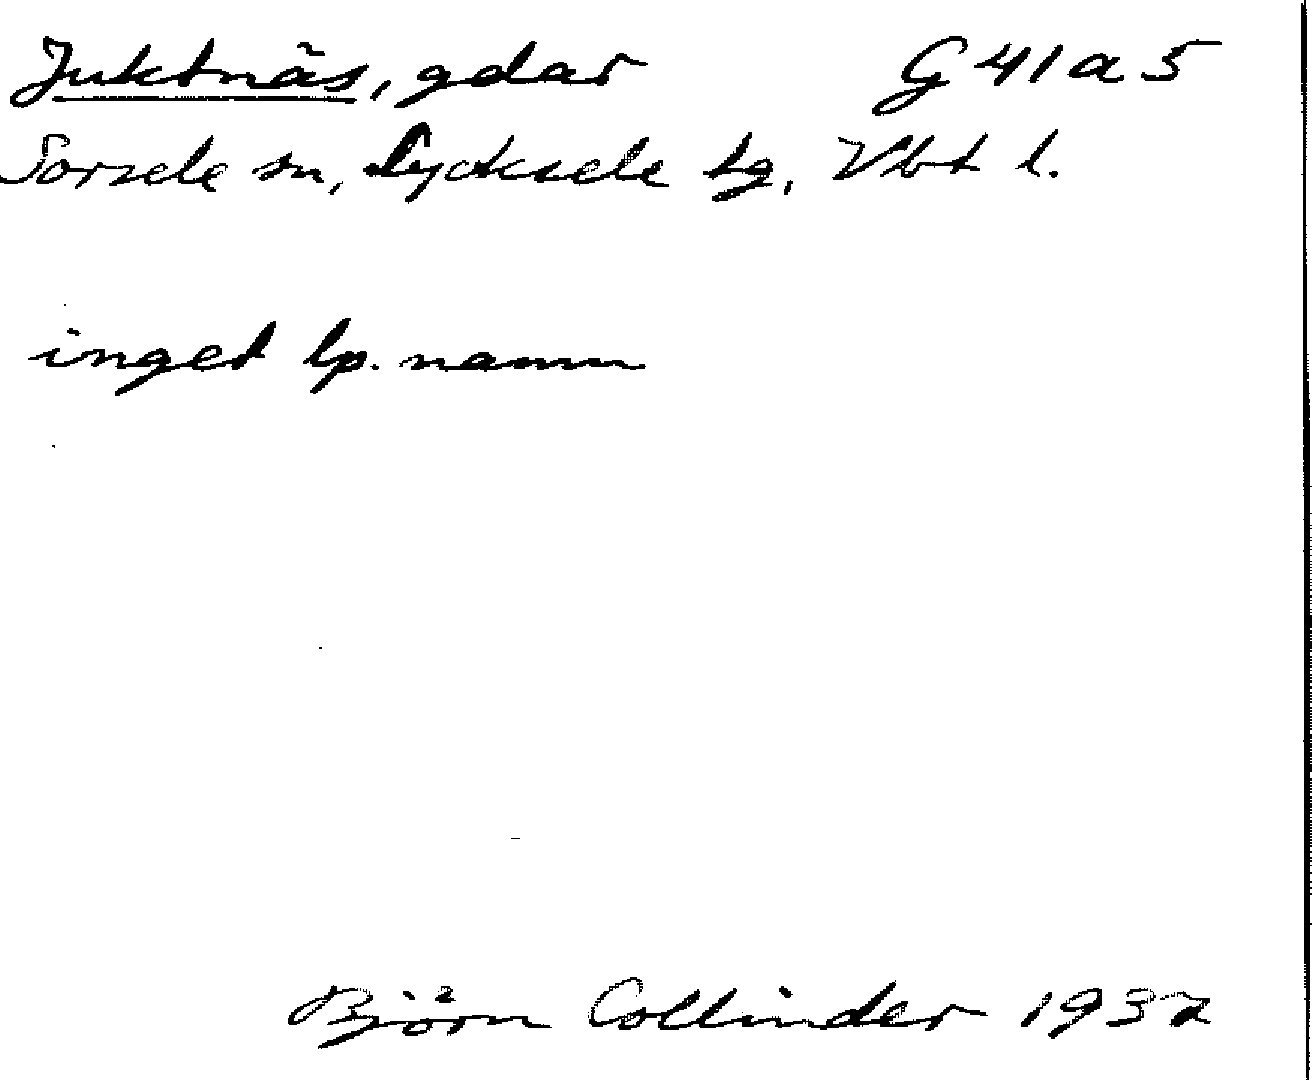 Juktnäs, gdar G 41 a 5
Sorsele sn, Lycksele tg, Vbt l.
inget lp. namn
Björn Collinder 1932